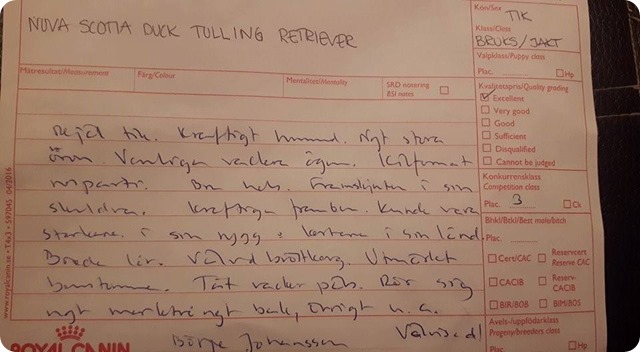 NOVA SCOTIA DUCK TOLLING RETRIEVER
Kön/Sex TIK
Klass/Class
BRUKS/JAKT
Valpklass/Puppy class
Plac. Hp
Mätresultat/Measurement Färg/Colour Mentalitet/Mentality SRD notering
BSI notes
Kvalitetspris/Quality grading
Excellent
Very good
Good
Sufficient
Disqualified
Cannot be judged
Konkurrensklass
Competition class
Plac. 3 Ck
Bhkl/Btkl/Best male/bitch
Plac.
Cert/CAC Reservcert
Reserve CAC
CACIB Reserv-
CACIB
BIR/BOB BIM/BOS
Avels-/uppfödarklass
Progeny/breeders class
Plac. Hp
Rejäl tik. Kraftigt huvud. Ngt stora
öron. Vänliga vackra ögon. Kilformat
nosparti. Bra hals. Framskjuten i sin
skuldra. Kraftiga framben. Kunde vara
starkare i sin rygg + kortare i sin länd
Breda lår. Välvd bröstkorg. Utmärkt
benstomme. Tät vacker päls. Rör sig
ngt marktrångt bak, övrigt u.a.
Börje Johansson Välvisad!
www.royalcanin.se • T4x3 • 597045 04/2016
ROYAL CANIN